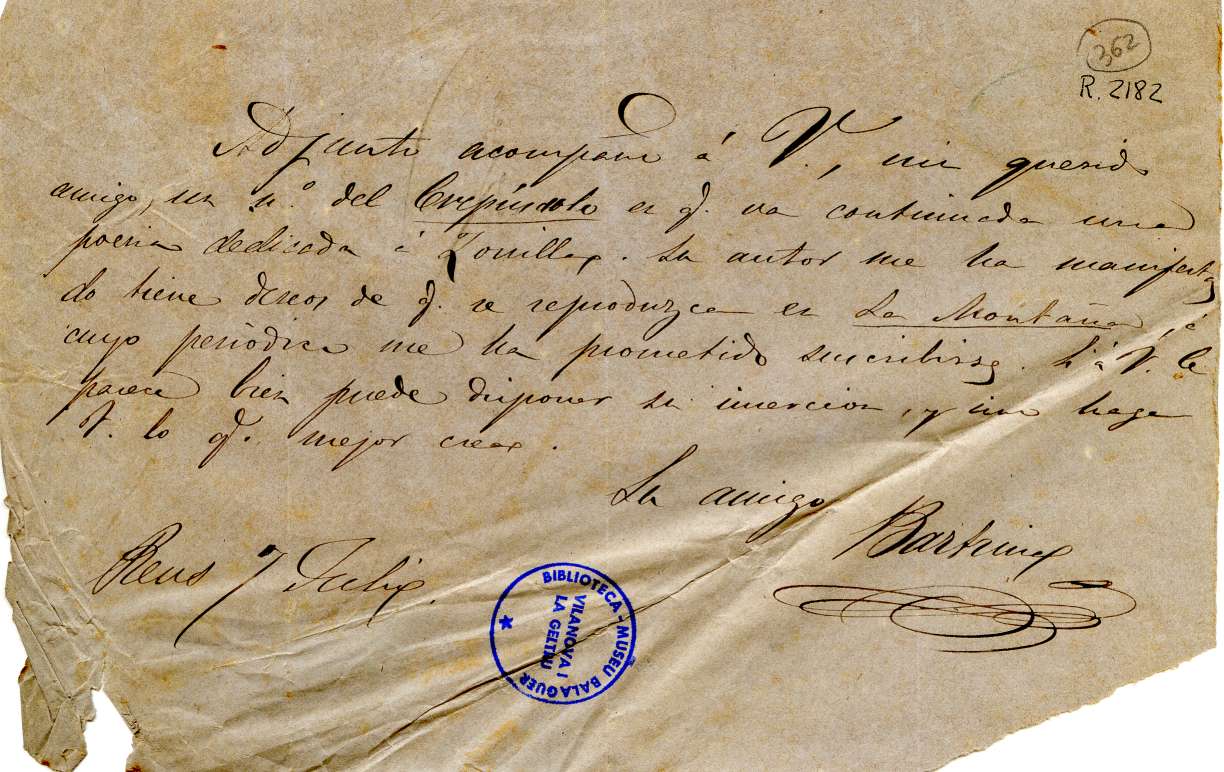 362
R. 2182
Adjunto acompaño á V., mi querido
amigo, un n.º del Crepúsculo en q.e va continuada una
poesia dedicada á Zorrilla. Su autor me ha manifesta
do tiene deseos de q.e se reproduzca en La Montaña, á
cuyo periódico me ha prometido suscribirse. Si á V. le
parece bien puede disponer su insercion, y sino haga
V. lo q.e mejor crea.
Su amigo
Bartrina
Reus 7 Julio.
BIBLIOTECA - MUSEU BALAGUER
VILANOVA I
LA GELTRÚ